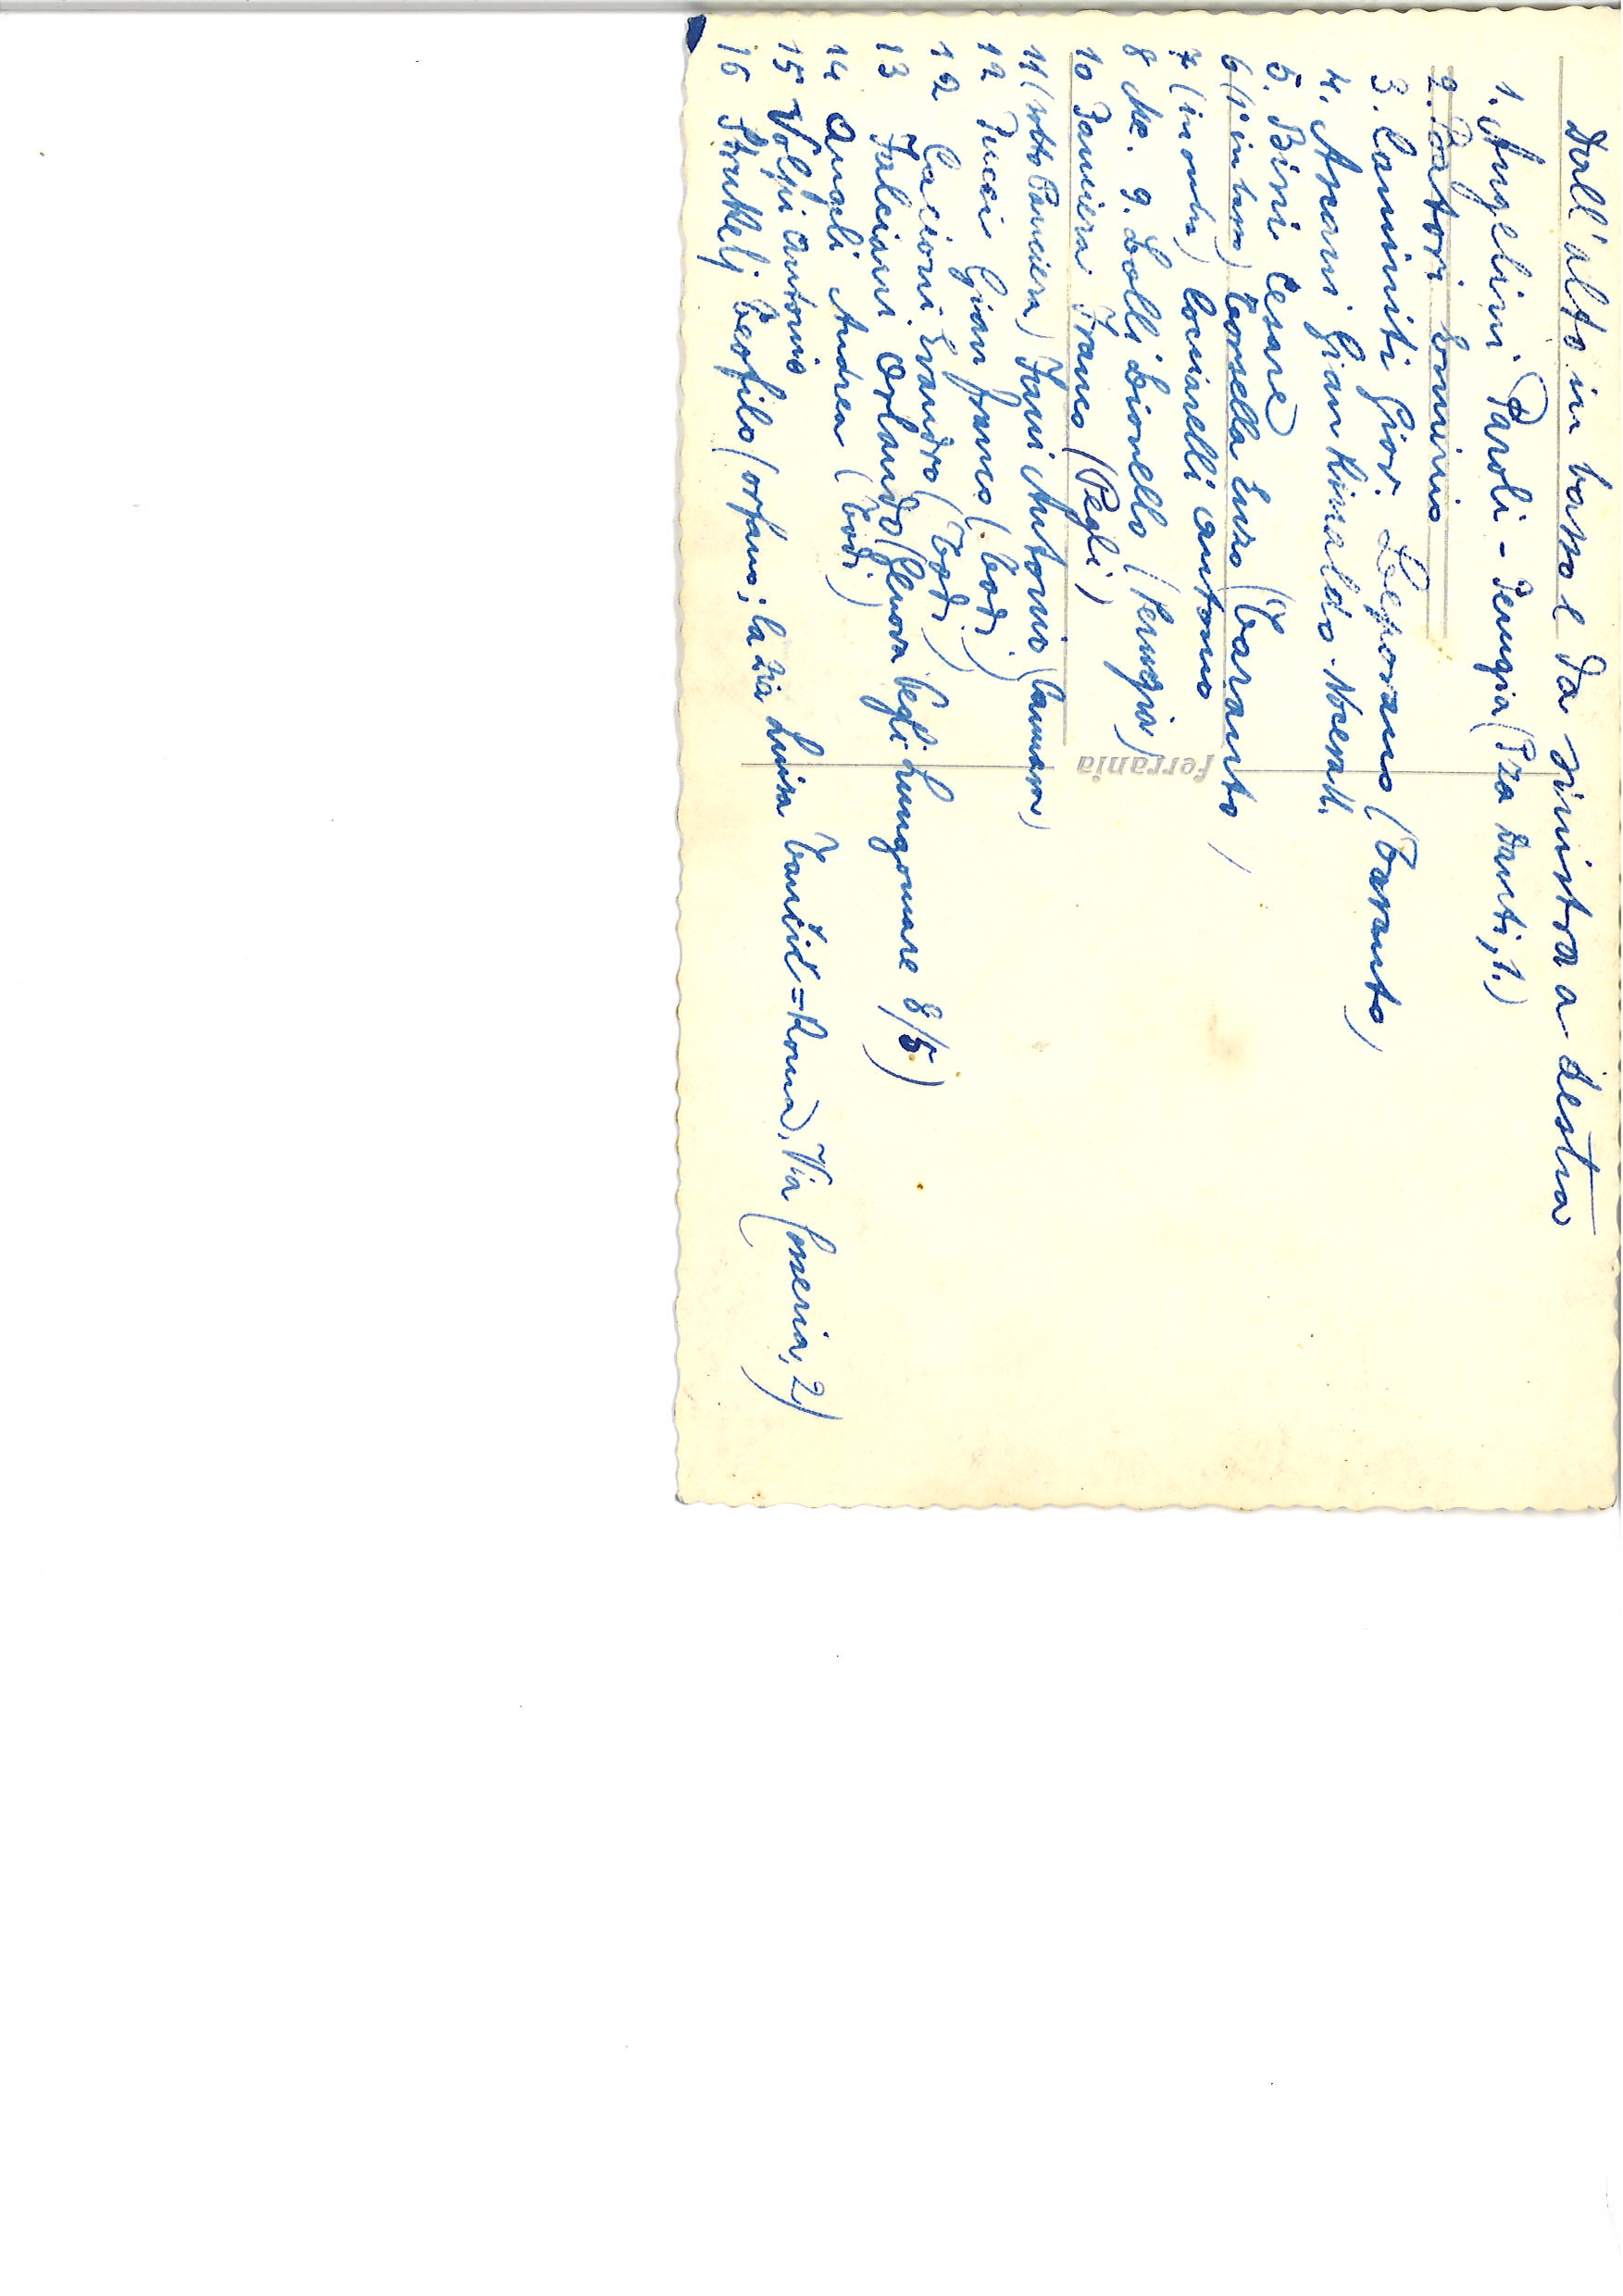 Dall'alto in basso e da sinistra a destra
1. Angelini Paroli - Perugia (P.za Danti, 1.)
2. Pastori Erminio
3. Caminiti Giov. Leporano (Taranto)
4. Ascani Gian Rinaldo - Nocera U.
5. Bini Cesare
6 (in basso) Torsella Enzo (Taranto)
7 (in ombra) Cociarelli Antonio
8 Ma. 9. Lolli Lionello (Perugia)
10 Panciera Franco (Pegli)
11 (sotto Panciera) Fani Antonio (Cannara)
12 Pucci Gian franco (Todi)
12 Cacioni Evandro (Todi)
13 Falciani Orlando (Genova Pegli Lungomare 8/5)
14 Angeli Andrea (Todi)
15 Volpi Antonio
16 Strukelj Teofilo (orfano; la zia Luisa = Roma, Via Cosseria, 2)
ferrania